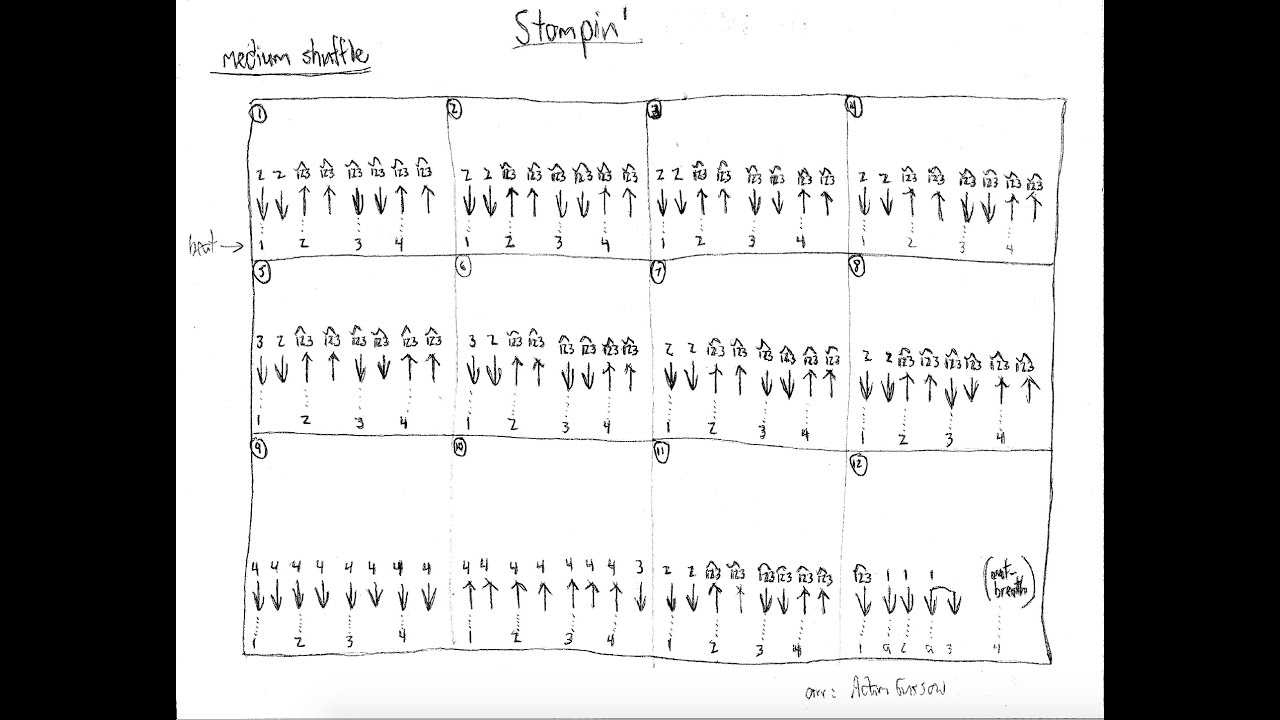 Stompin'
medium shuffle
① ② ③ ④
2 2 123 123 123 123 123 123 2 2 123 123 123 123 123 123 2 2 123 123 123 123 123 123 2 2 123 123 123 123 123 123
↓ ↓ ↑ ↑ ↓ ↓ ↑ ↑ ↓ ↓ ↑ ↑ ↓ ↓ ↑ ↑ ↓ ↓ ↑ ↑ ↓ ↓ ↑ ↑ ↓ ↓ ↑ ↑ ↓ ↓ ↑ ↑
beat → 1 2 3 4 1 2 3 4 1 2 3 4 1 2 3 4
⑤ ⑥ ⑦ ⑧
3 2 123 123 123 123 123 123 3 2 123 123 123 123 123 123 2 2 123 123 123 123 123 123 2 2 123 123 123 123 123 123
↓ ↓ ↑ ↑ ↓ ↓ ↑ ↑ ↓ ↓ ↑ ↑ ↓ ↓ ↑ ↑ ↓ ↓ ↑ ↑ ↓ ↓ ↑ ↑ ↓ ↓ ↑ ↑ ↓ ↓ ↑ ↑
1 2 3 4 1 2 3 4 1 2 3 4 1 2 3 4
⑨ ⑩ ⑪ ⑫
4 4 4 4 4 4 4 4 4 4 4 4 4 4 4 3 2 2 123 123 123 123 123 123 123 1 1 1 (out-
breath)
↓ ↓ ↓ ↓ ↓ ↓ ↓ ↓ ↑ ↑ ↑ ↑ ↑ ↑ ↑ ↓ ↓ ↓ ↑ ↑ ↓ ↓ ↑ ↑ ↓ ↓ ↓ ↓ ↓
1 2 3 4 1 2 3 4 1 2 3 4 1 a 2 a 3 4
arr: Adam Gussow